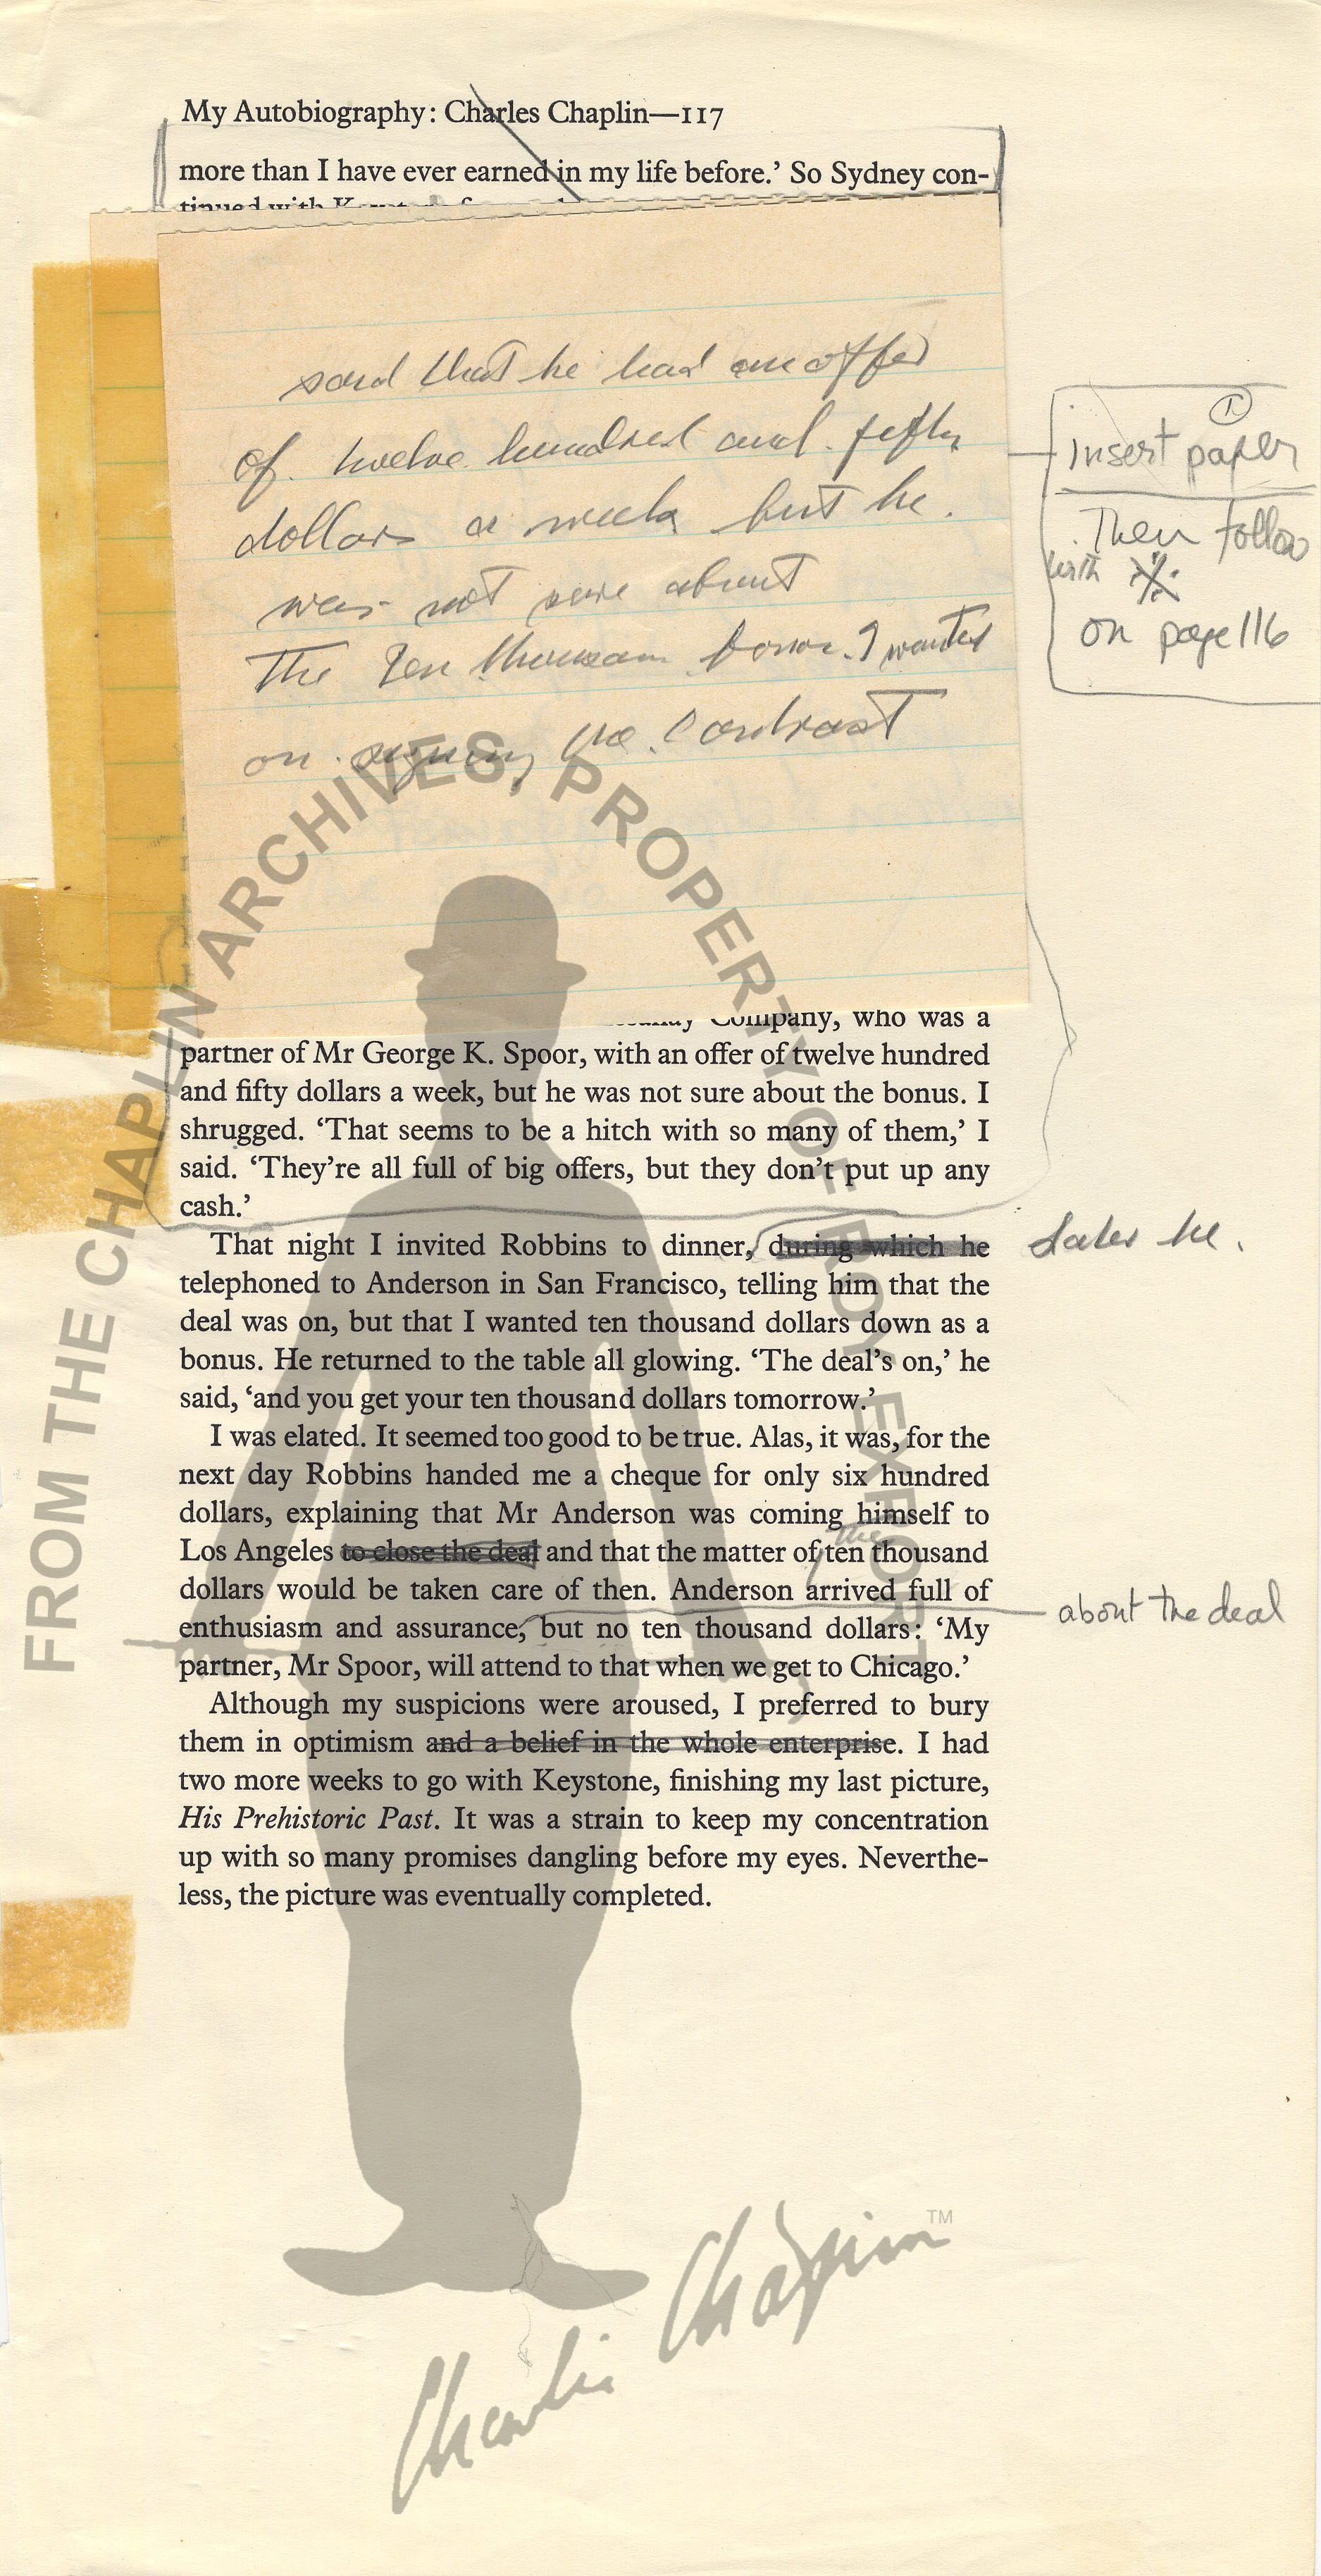 My Autobiography: Charles Chaplin—117
more than I have ever earned in my life before.’ So Sydney con-
tinued with
said that he had an offer
of twelve hundred and fifty
dollars a week but he
was not sure about
The Ten thousand bonus I wanted
on signing the contract
①
insert paper
Then follow
with
on page 116
Company, who was a
partner of Mr George K. Spoor, with an offer of twelve hundred
and fifty dollars a week, but he was not sure about the bonus. I
shrugged. ‘That seems to be a hitch with so many of them,’ I
said. ‘They’re all full of big offers, but they don’t put up any
cash.’
That night I invited Robbins to dinner, during which he
later he.
telephoned to Anderson in San Francisco, telling him that the
deal was on, but that I wanted ten thousand dollars down as a
bonus. He returned to the table all glowing. ‘The deal’s on,’ he
said, ‘and you get your ten thousand dollars tomorrow.’
I was elated. It seemed too good to be true. Alas, it was, for the
next day Robbins handed me a cheque for only six hundred
dollars, explaining that Mr Anderson was coming himself to
the
Los Angeles to close the deal and that the matter of ten thousand
dollars would be taken care of then. Anderson arrived full of
about the deal
enthusiasm and assurance, but no ten thousand dollars: ‘My
partner, Mr Spoor, will attend to that when we get to Chicago.’
Although my suspicions were aroused, I preferred to bury
them in optimism and a belief in the whole enterprise. I had
two more weeks to go with Keystone, finishing my last picture,
His Prehistoric Past. It was a strain to keep my concentration
up with so many promises dangling before my eyes. Neverthe-
less, the picture was eventually completed.
FROM THE CHAPLIN ARCHIVES, PROPERTY OF ROY EXPORT
Charlie Chaplin™